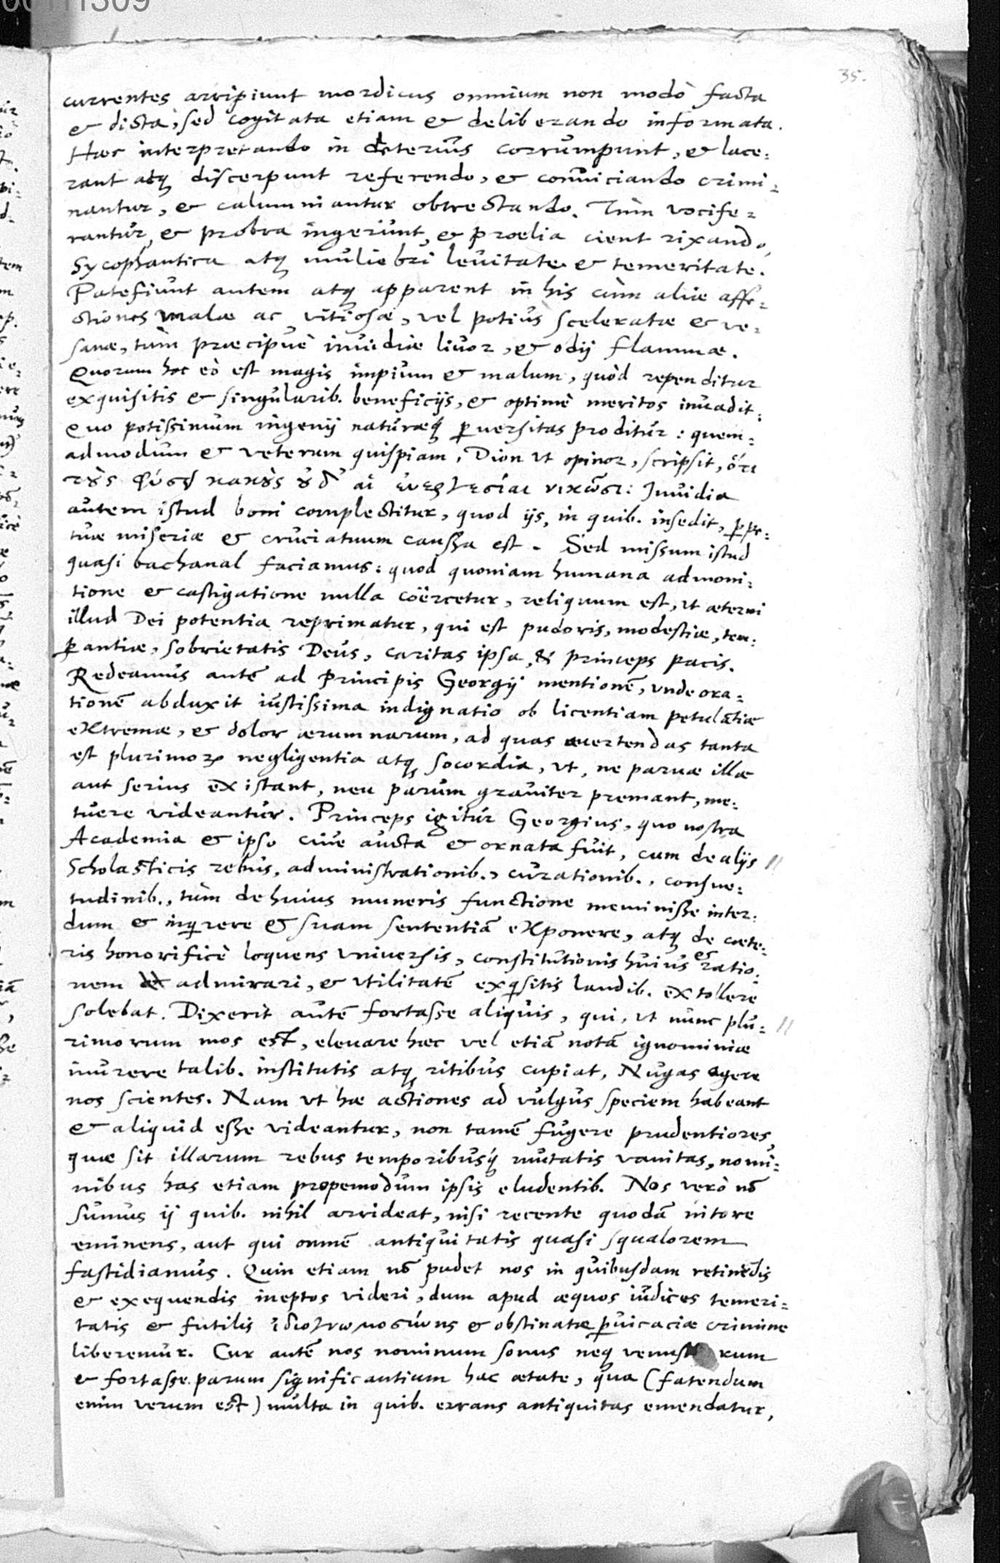 00111309
35.
currentes arripiunt mordicus omnium non modò facta
& dicta, sed cogitata etiam & deliberando informata.
Haec interpretando in deterius corrumpunt, & lace:
rant atq; discerpunt referendo, & conviciando crimi:
nantur, & calumniantur obtrectando. Tum vocife:
rantur, & probra ingerunt, & proelia cient rixando,
Sycophantica atq; muliebri levitate & temeritate.
Patefiunt autem atq; apparent in his cùm aliae affe:
ctiones malae ac vitiosae, vel potius sceleratae & ve:
sanae, tùm praecipuè invidiae livor, & odij flammae.
Quorum hoc eò est magis impium & malum, quòd rependitur
exquisitis & singularib. beneficijs, & optimè meritos invadit:
Quo potissimum ingenij naturaeq; pversitas proditur: quem:
admodum & veterum quispiam, Dion ut opinor, scripsit, ὅτι
τοὺς φύσει κακοὺς οὐδ' αἱ εὐεργεσίαι νικῶσι: Invidia
autem istud boni complectitur, quod ijs, in quib. insedit, ppe:
tuae miseriae & cruciatuum caussa est. Sed missum istud
quasi bachanal faciamus: quod quoniam humana admoni:
tione & castigatione nulla coërcetur, reliquum est, ut aeterni
illud Dei potentia reprimatur, qui est pudoris, modestiae, tem:
pantiae, sobrietatis Deus, caritas ipsa, & princeps pacis.
Redeamus autē ad Principis Georgij mentionē, unde ora:
tionē abduxit iustissima indignatio ob licentiam petulātiae
extremae, & dolor aerumnarum, ad quas avertendas tanta
est plurimoꝝ negligentia atq; socordia, ut, ne parvae illae
aut serius existant, neu parum graviter premant, me:
tuere videantur. Princeps igitur Georgius, quo nostra
Academia & ipso cive aucta & ornata fuit, cum de alijs
Scholasticis rebus, administrationib., curationib., consue:
tudinib., tùm de huius muneris functione meminisse inter:
dum & inqrere & suam sententiā exponere, atq; de caete:
ris honorificè loquens universis, constitutionis huius & ratio:
nem admirari, & utilitatē exqsitis laudib. extollere
solebat. Dixerit autē fortasse aliquis, qui, ut nunc plu:
rimorum mos est, elevare haec vel etiā notā ignominiae
inurere talib. institutis atq; ritibus cupiat, Nugas agere
nos scientes. Nam ut hae actiones ad vulgus speciem habeant
& aliquid esse videantur, non tamē fugere prudentiores,
quae sit illarum rebus temporibusq; mutatis vanitas, nomi:
nibus has etiam propemodum ipsis eludentib. Nos verò nō
sumus ij quib. nihil arrideat, nisi recente quodā nitore
eminens, aut qui omnē antiquitatis quasi squalorem
fastidiamus. Quin etiam nō pudet nos in quibusdam retinēdis
& exequendis ineptos videri, dum apud aequos iudices temeri:
tatis & futilis ἰδιογνωμοσύνης & obstinatae pvicaciae crimine
liberemur. Cur autē nos nominum sonus neq; rum
& fortasse parum significantium hac aetate, qua (fatendum
enim verum est) multa in quib. errans antiquitas emendatur,